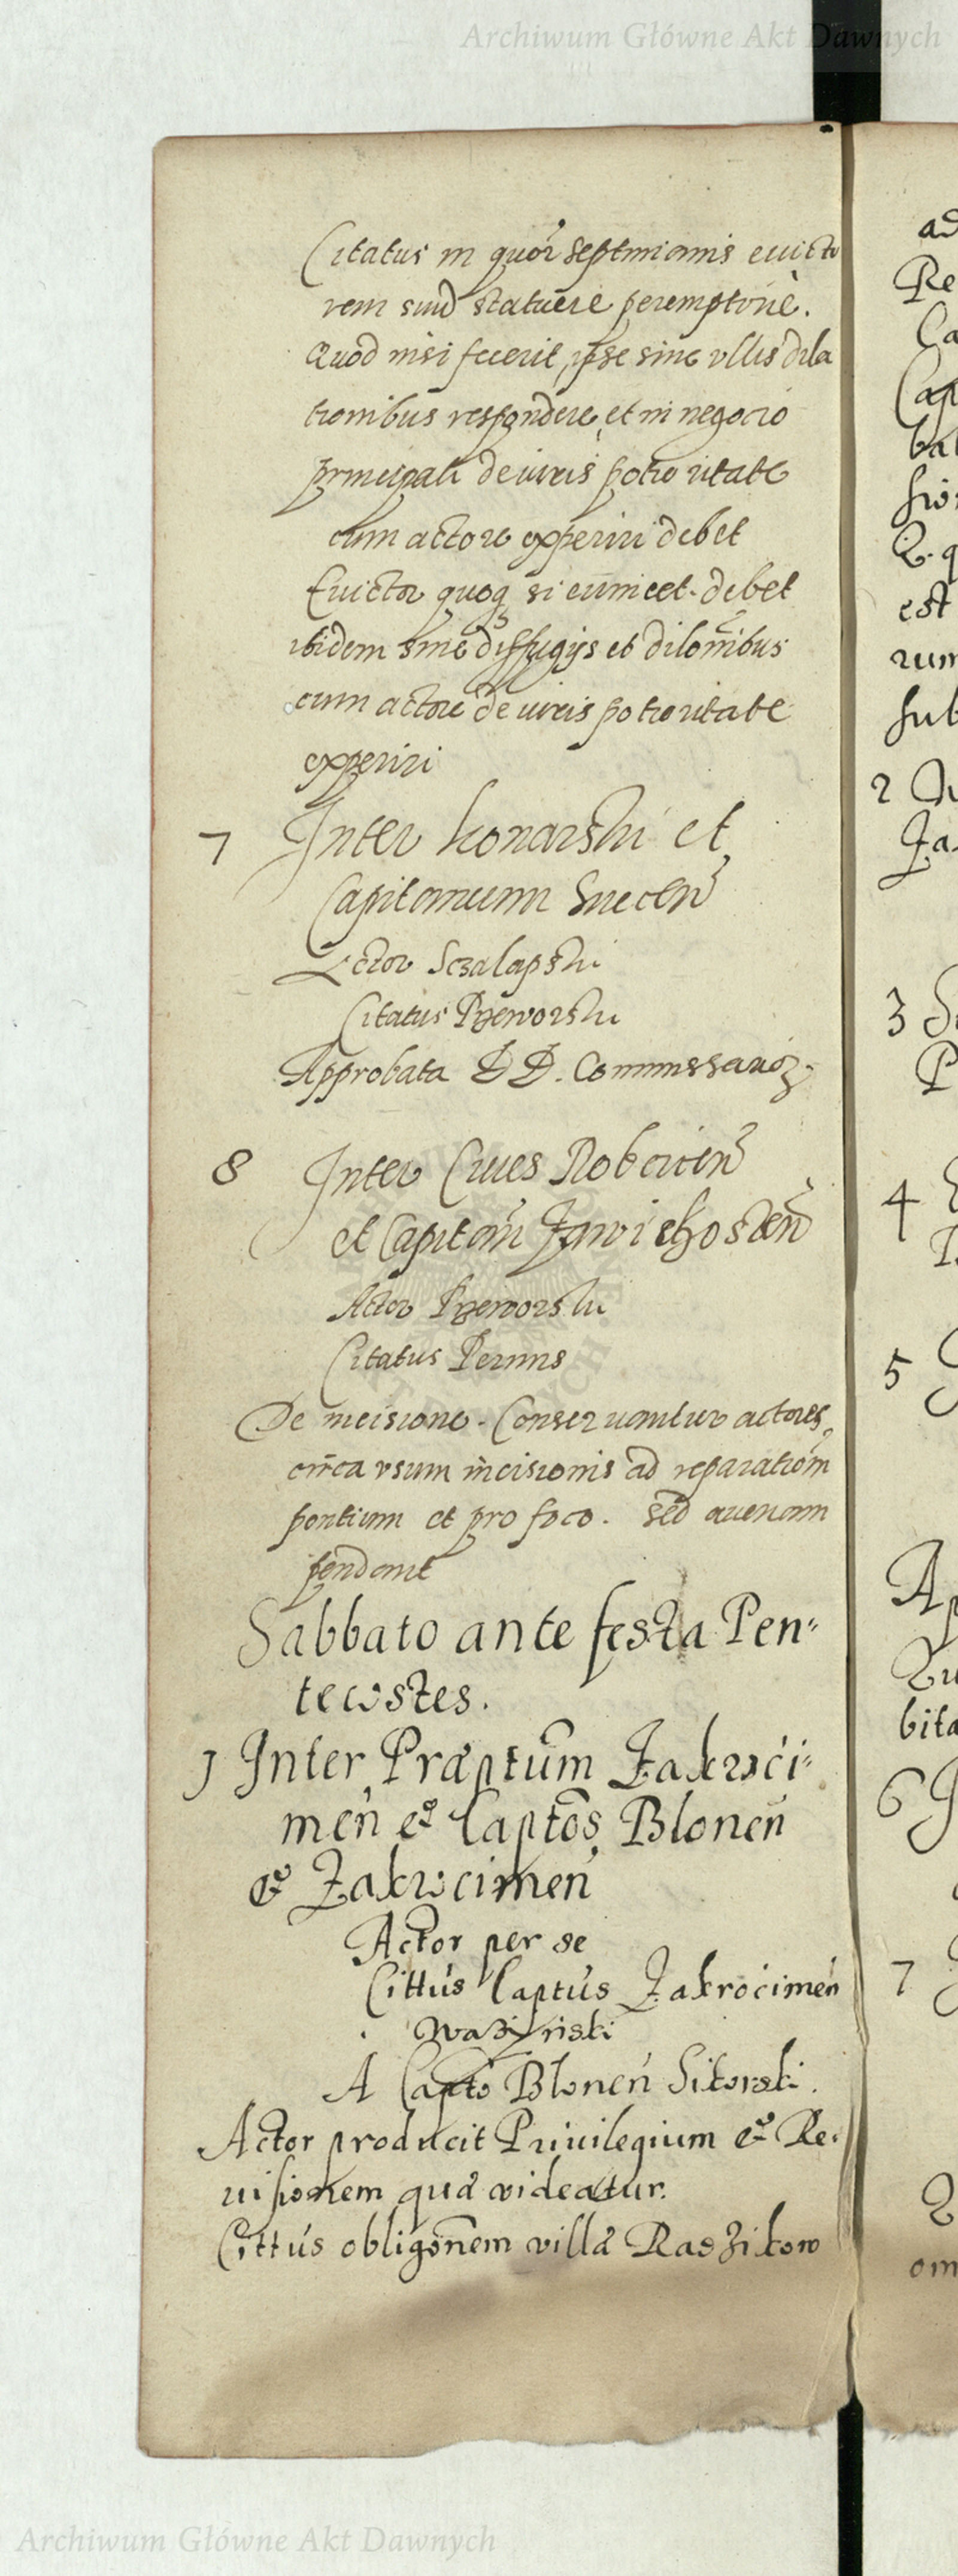 Archiwum Główne Akt Dawnych
Citatus in quor septimanis euicto
rem suũ statuere peremptorie.
Quod nisi fecerit, ipse sine vllis dila
tionibus respondere, et in negocio
principali de iuris potioritate
cum actore experiri debet
Euictor quoq si euincet. debet
ibidem sine diffugijs et dilonibus
cum actore de iuris potioritate
experiri
7 Inter Konarski et
Capitaneum Suecen
Actor Sczalapski
Citatus Przeworski
Approbata D D. Commissarior
8 Inter Ciues Robcicen
et Capitan Zawichosten
Actor Przeworski
Citatus Pernus
De incisione. Conseruantur actores
circa vsum incisionis ad reparationem
pontium et pro foco. sed auenam
pendant
Sabbato ante festa Pen-
tecostes.
1 Inter Præptum Zakroci-
men et Captos Blonen
et Zakrocimen
Actor per se
Cittus Captus Zakrocimen
Wazynski
A Capto Blonen Sikorski.
Actor producit Priuilegium et Re-
uisionem quæ videatur.
Cittus obligonem villæ Raszikow
ad
Re
Ca
Cap
bat
sio
Q. q
est
rum
sub
2
Za
3
P
4
5
Ap
bita
6
7
om
Archiwum Główne Akt Dawnych